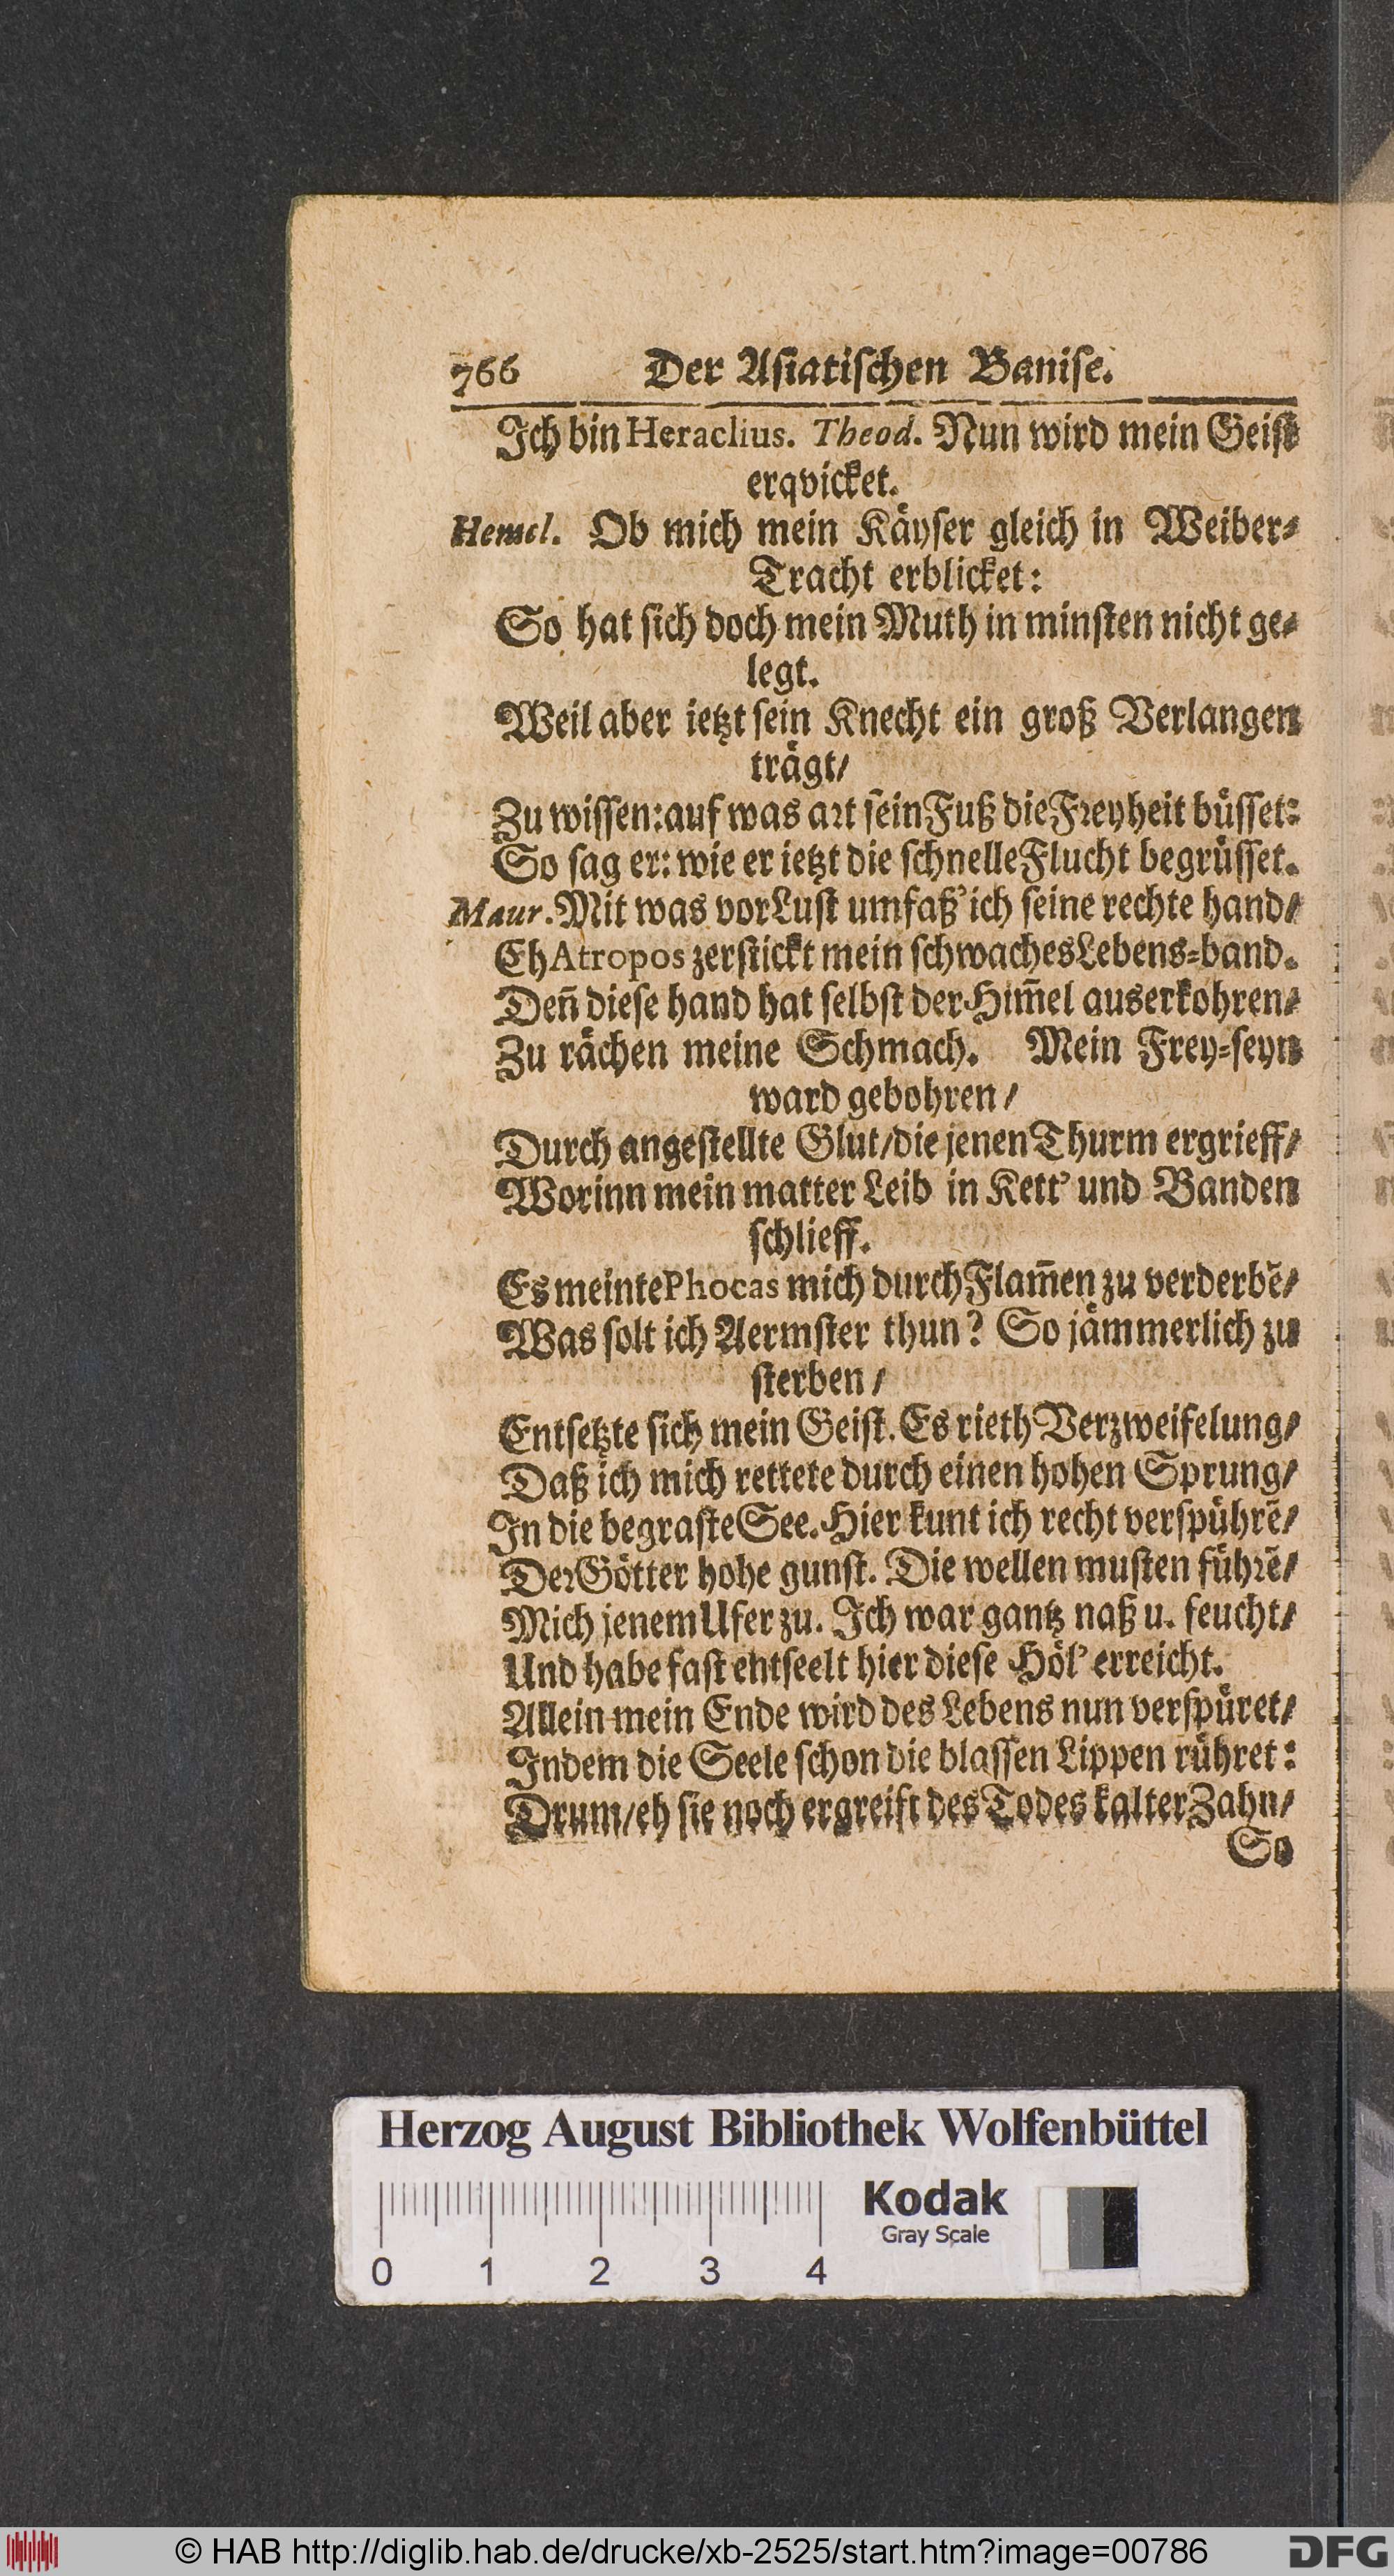 766 Der Asiatischen Banise.
Ich bin Heraclius. Theod. Nun wird mein Geist
erqvicket.
Hemel. Ob mich mein Käyser gleich in Weiber-
Tracht erblicket:
So hat sich doch mein Muth in minsten nicht ge-
legt.
Weil aber ietzt sein Knecht ein groß Verlangen
trägt/
Zu wissen: auf was art sein Fuß die Freyheit büsset:
So sag er: wie er ietzt die schnelle Flucht begrüsset.
Maur. Mit was vor Lust umfaß' ich seine rechte hand/
Eh Atropos zerstickt mein schwaches Lebens-band.
Deñ diese hand hat selbst der Him̃el auserkohren/
Zu rächen meine Schmach. Mein Frey-seyn
ward gebohren/
Durch angestellte Glut/ die jenen Thurm ergrieff/
Worinn mein matter Leib in Kett' und Banden
schlieff.
Es meinte Phocas mich durch Flam̃en zu verderbẽ/
Was solt ich Aermster thun? So jämmerlich zu
sterben/
Entsetzte sich mein Geist. Es rieth Verzweifelung/
Daß ich mich rettete durch einen hohen Sprung/
In die begraste See. Hier kunt ich recht verspührẽ/
Der Götter hohe gunst. Die wellen musten führẽ/
Mich jenem Ufer zu. Ich war gantz naß u. feucht/
Und habe fast entseelt hier diese Höl' erreicht.
Allein mein Ende wird des Lebens nun verspüret/
Indem die Seele schon die blassen Lippen rühret:
Drum/ eh sie noch ergreift des Todes kalter Zahn/
So
Herzog August Bibliothek Wolfenbüttel
Kodak
Gray Scale
0 1 2 3 4
© HAB http://diglib.hab.de/drucke/xb-2525/start.htm?image=00786
DFG